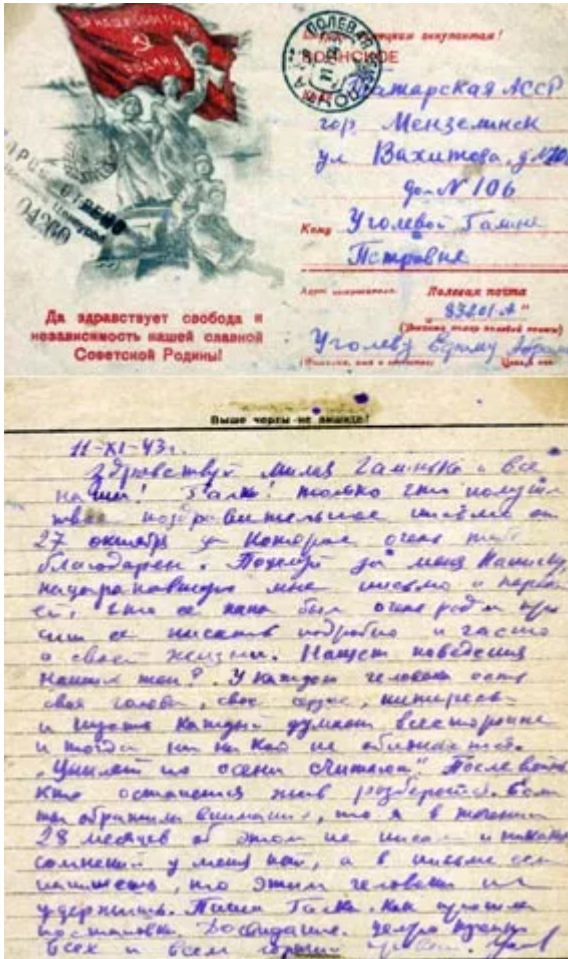 ЗА НАШУ СОВЕТСКУЮ
РОДИНУ
ПОЛЕВАЯ
ПОЧТА
оккупантам!
ВОИНСКОЕ
Татарская АССР
гор Мензелинск
ул Вахитова, д
№ 106
Кому Уголевой Галине
Петровне
ПРОСМОТРЕНО
Военной Цензурой
04260
Адрес отправителя: Полевая почта
83201-А"
Уголеву Ефиму
Да здравствует свобода и
независимость нашей славной
Советской Родины!
Выше черты не пишите!
11-XI-43г.
Здравствуй милая Галинька и все
наши! Галка! только что получил
твое поздравительное письмо от
27 октября за которое очень тебе
благодарен. Поцелуй за меня
нацарапавшую мне письмо и передай
ей, что ее папа был очень рад и
ее писать подробно и часто
о своей жизни. Насчет поведения
У каждого человека есть
своя голова, свое сердце, интересы
и пусть каждый думает всесторонне
и тогда ни на кого не обижаться.
"Цыплят по осени считают" После войны
кто останется жив разберется.
ты обратила внимание, что я в течении
28 месяцев об этом не писал и никаких
сомнений у меня нет, а в письме
пишешь, что этим человека не
удержишь. Пиши Галка. Как прошли
постановки. До свидания. целую
всех и всем горячий привет.